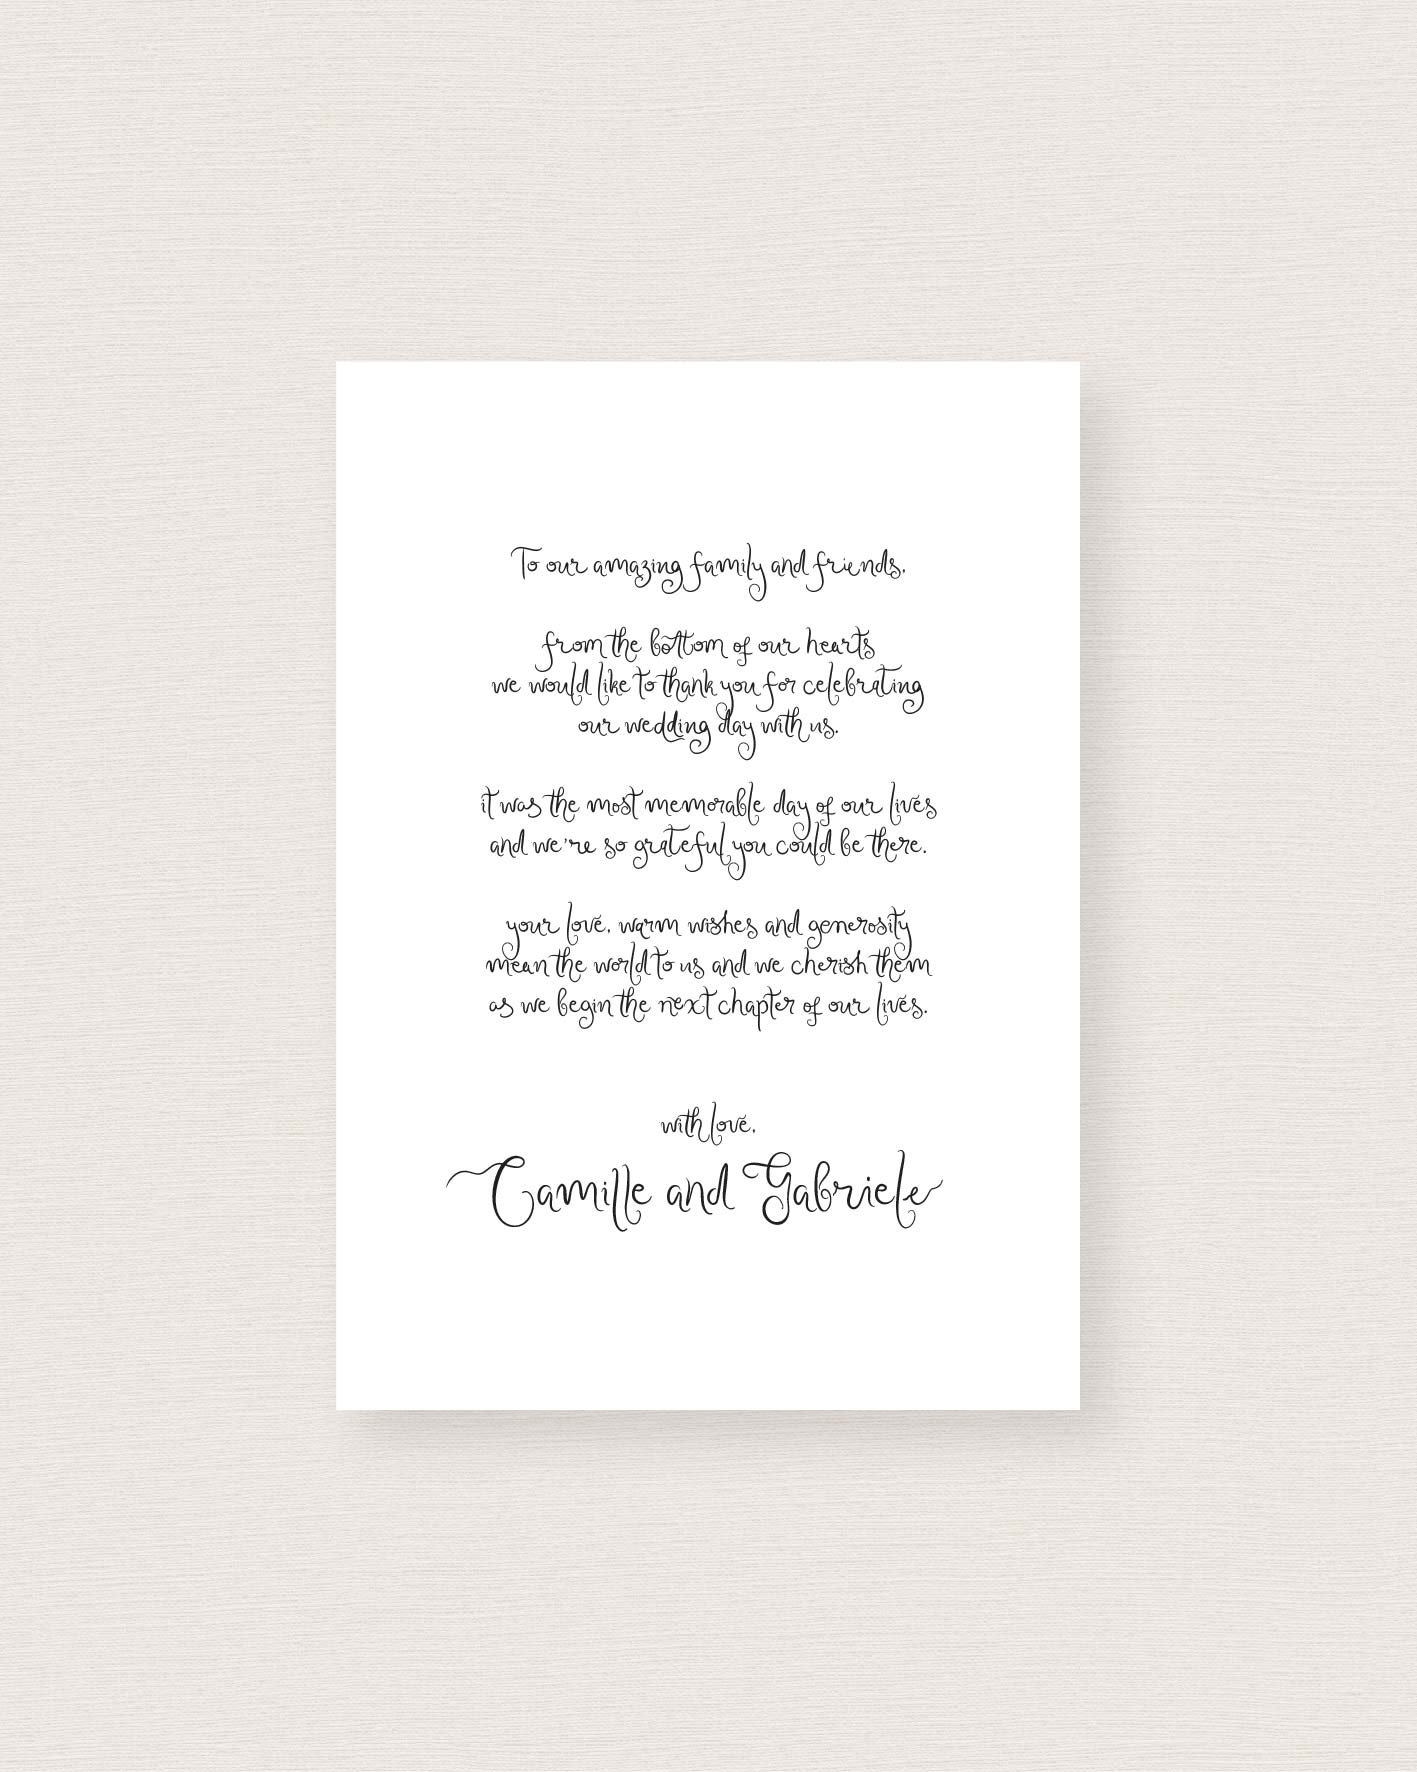 To our amazing family and friends,
from the bottom of our hearts
we would like to thank you for celebrating
our wedding day with us.
it was the most memorable day of our lives
and we're so grateful you could be there.
your love, warm wishes and generosity
mean the world to us and we cherish them
as we begin the next chapter of our lives.
with love,
Camille and Gabriele